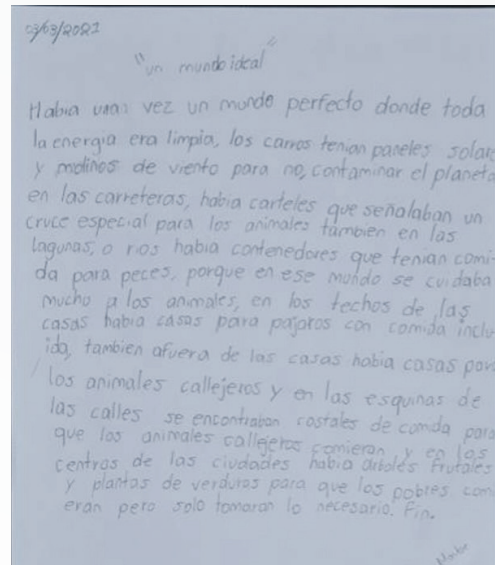 03/03/2021
"un mundo ideal"
Habia una vez un mundo perfecto donde toda
la energia era limpia, los carros tenian paneles solare
y molinos de viento para no, contaminar el planeta
en las carreteras, habia carteles que señalaban un
cruce especial para los animales tambien en las
lagunas, o rios habia contenedores que tenian comi-
da para peces, porque en ese mundo se cuidaba
mucho a los animales, en los techos de las
casas habia casas para pajaros con comida inclu
ida, tambien afuera de las casas habia casas para
los animales callejeros y en las esquinas de
las calles se encontraban costales de comida para
que los animales callejeros comieran y en los
centros de las ciudades habia arboles frutales
y plantas de verduras para que los pobres comi
eran pero solo tomaran lo necesario. Fin.